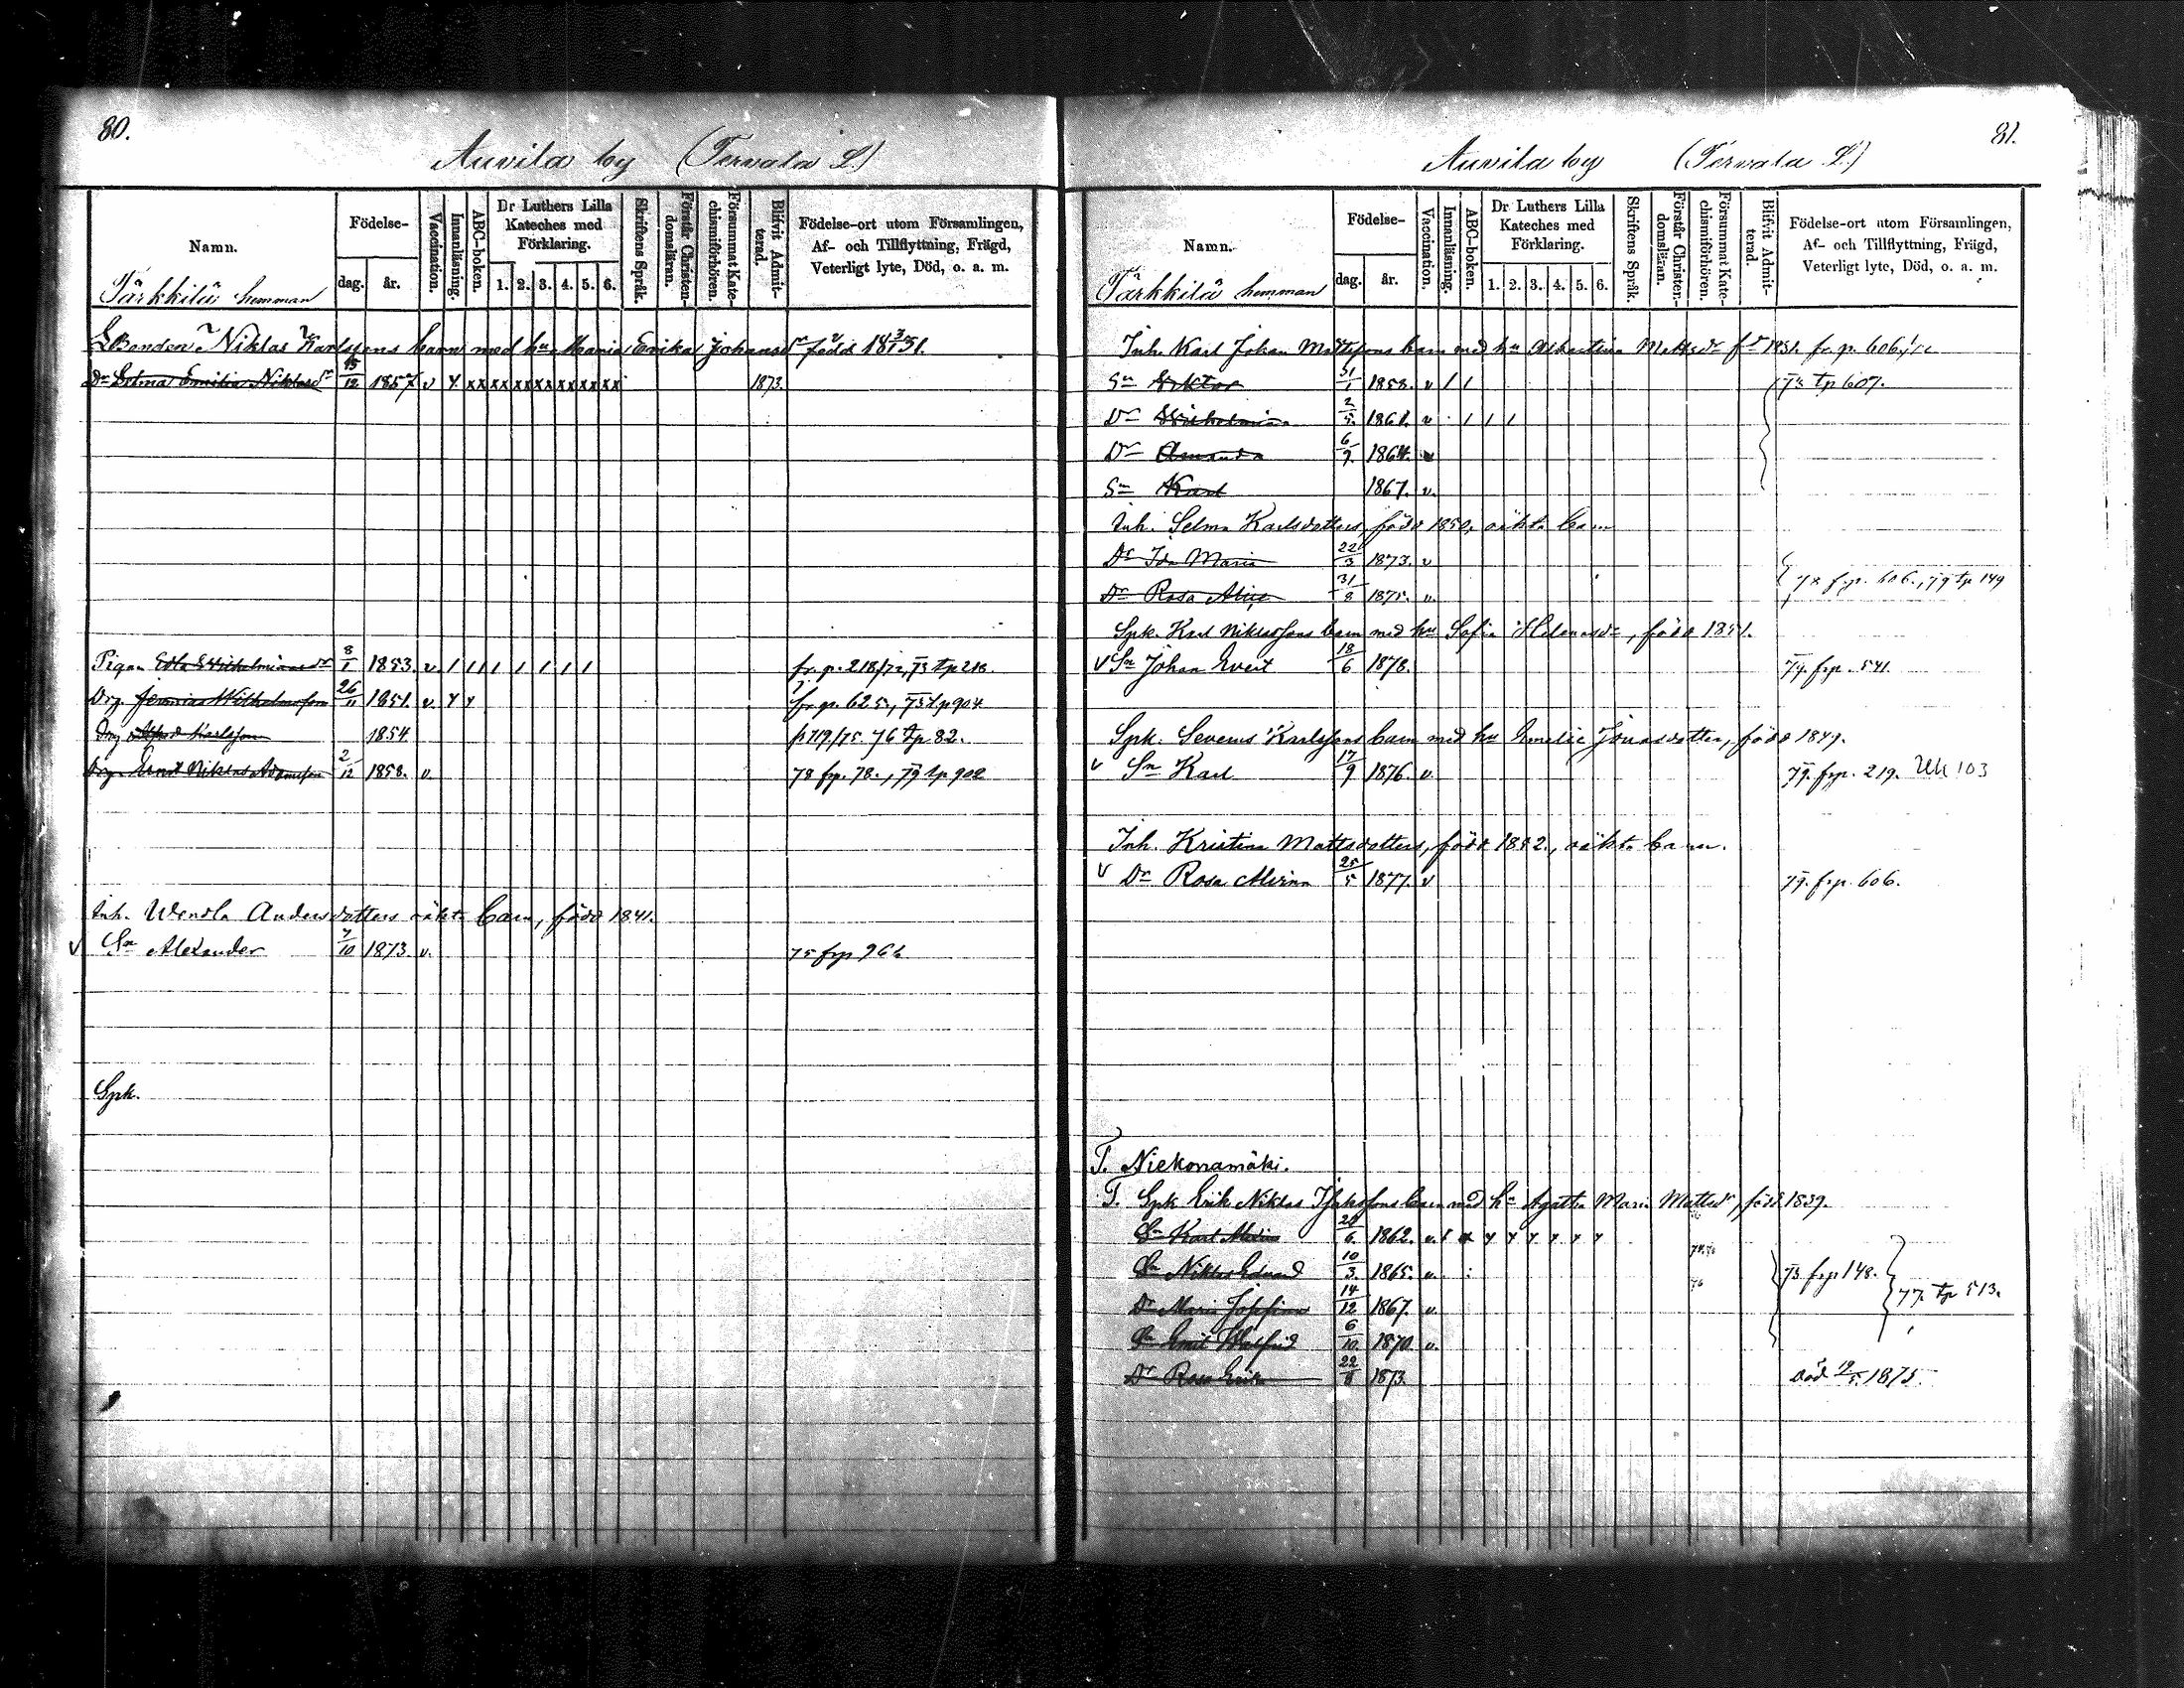 80.
Auvila by (Tervala L.)
Namn.
Födelse-
dag. år.
Vaccination.
Innanläsning.
ABC-boken.
Dr Luthers Lilla Kateches med Förklaring.
1. 2. 3. 4. 5. 6.
Skriftens Språk.
Förstår Christendomsläran.
Försummat Katechismiförhören.
Blifvit Admitterad.
Födelse-ort utom Församlingen, Af- och Tillflyttning, Frägd, Veterligt lyte, Död, o. a. m.
Tärkkilä hemman
Bonden Niklas Karlssons barn med hu Maria Erika Johansdr född 1831.
Dr Selma Emilia Niklasdr 15/12 1857 v x x x x x x x x x x x x x x x 1873.
Pigan Edla Wilhelminasdr 8/1 1853. v / / / / / / / / fr. p. 218/72, 73 tp 218
Drg. Jeremias Wilhelmsson 26/11 1851. v x x fr p. 625., 75 tp 904
Drg Alfred Karlsson 1854 p 719/75. 76 tp. 82.
Drg. Ernst Niklas Adamsson 2/12 1858. v. 78 frp. 78., 79 tp 902
Inh. Wendla Andersdotters oäkta barn, född 1841.
v Sn Alexander 7/10 1873. v. 75 frp 966
Spk.
81.
Auvila by (Tervala L.)
Namn.
Födelse-
dag. år.
Vaccination.
Innanläsning.
ABC-boken.
Dr Luthers Lilla Kateches med Förklaring.
1. 2. 3. 4. 5. 6.
Skriftens Språk.
Förstår Christendomsläran.
Försummat Katechismiförhören.
Blifvit Admitterad.
Födelse-ort utom Församlingen, Af- och Tillflyttning, Frägd, Veterligt lyte, Död, o. a. m.
Tärkkilä hemman
Inh. Karl Johan Mattssons barn med hu Albertina Mattsdr fd 1831. fr. p. 606
Sn Viktor 31/1 1858. v / / 73 tp 607.
Dr Wilhelmina 2/5. 1861. v / / /
Dr Amanda 6/9. 1864. v
Sn Karl 1867. v.
Inh. Selma Karlsdotters, född 1850, oäkta barn
Dr Ida Maria 22/3 1873. v
Dr Rosa Alice 31/8 1875. v. 78 frp. 606., 79 tp 149
Spk. Karl Niklassons barn med hu Sofia Helenasdr, född 1851.
v Sn Johan Evert 18/6 1878. 79. frp. 541.
Spk. Severus Karlssons barn med hu Emelie Jonasdotter, född 1849.
v Sn Karl 17/9 1876. v. 79. frp. 219. Uk 103
Inh. Kristina Mattsdotters, född 1852., oäkta barn.
v Dr Rosa Alvina 25/5 1877. v 79. frp. 606.
T. Niekonamäki.
T. Spk Erik Niklas Isakssons barn med hu Agatha Maria Mattsdr, född 1839.
Sn Karl 6. 1862. v. x x x x x x x
Sn Niklas Edvard 10/3. 1865. v. 73 frp 148.
Dr Maria Josefina 14/12 1867. v 77. tp 513.
Sn Emil Walfrid 6/10. 1870. v.
Dr Rosa Erika 22/8 1873. död 1875.